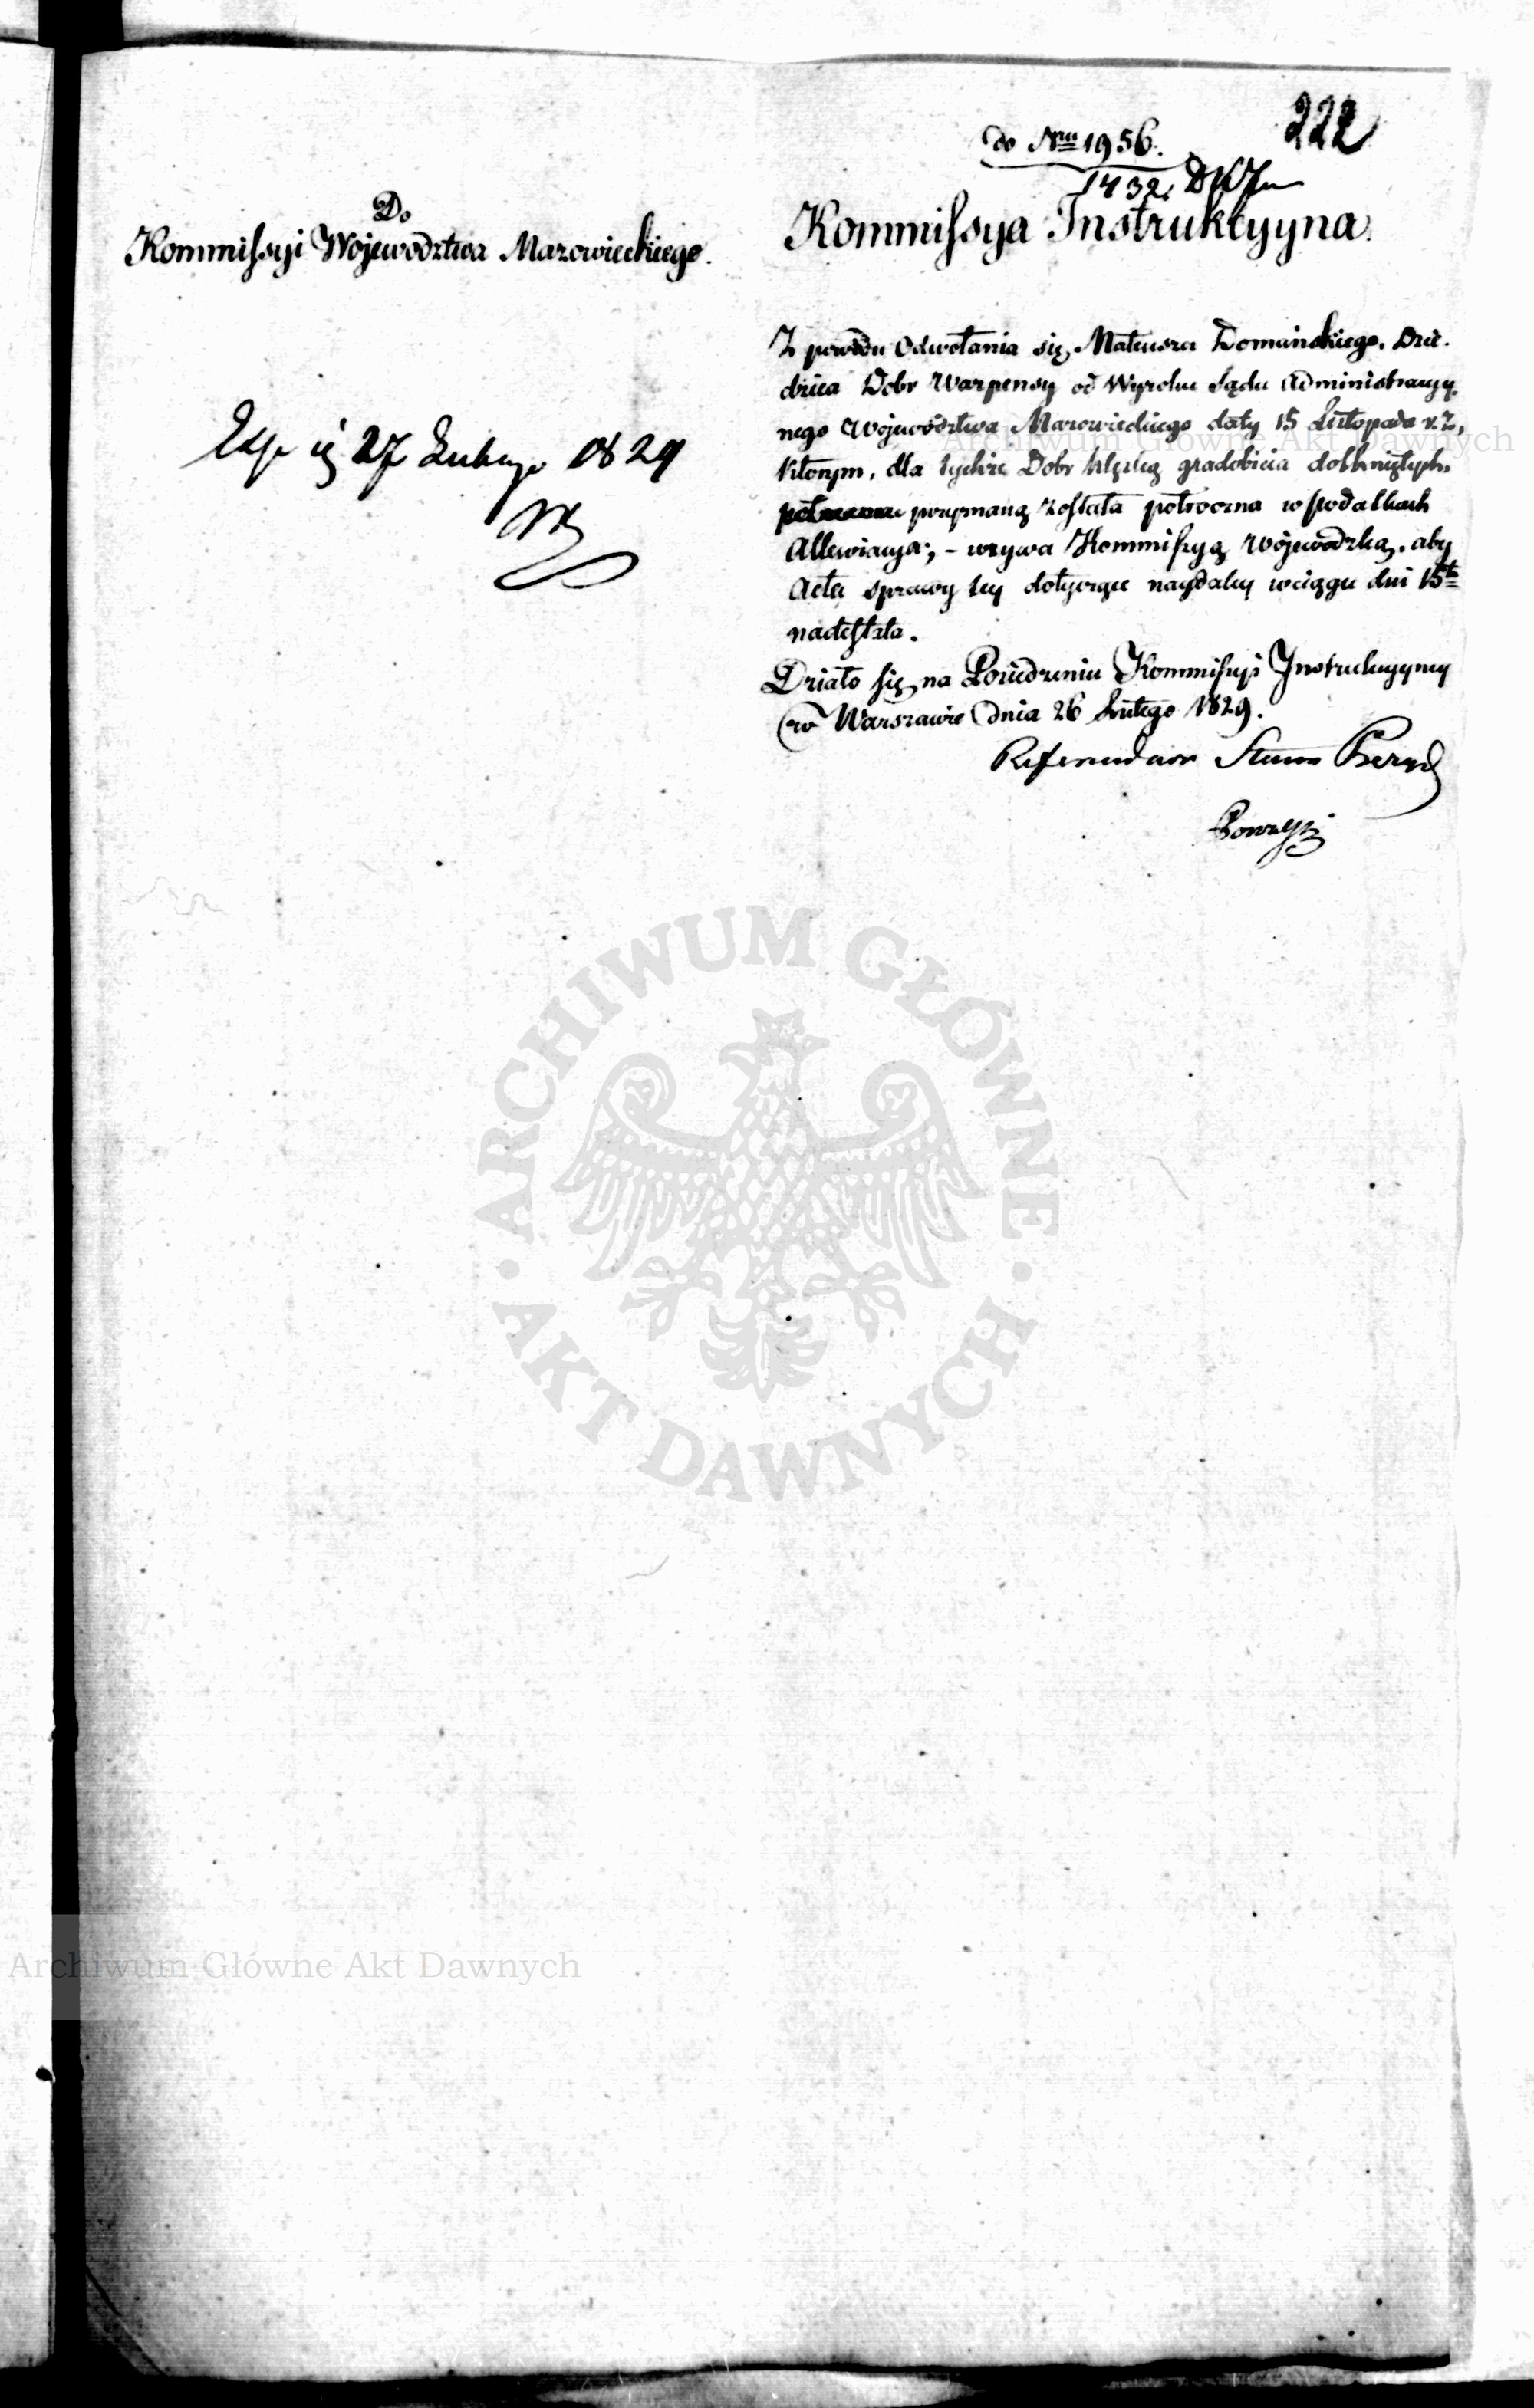 222
do Nru 1956.
1432.
Do
Kommissyi Województwa Mazowieckiego.
Kommissya Instrukcyyna.
Z powodu Odwołania się Mateusza Domańskiego, Dzie-
dzica Dobr Warpensy od Wyroku Sądu Administracyy-
nego Województwa Mazowieckiego daty 15 Listopada r. z.,
którym, dla tychże Dobr klęską gradobicia dotkniętych,
przyznaną została półroczna w podatkach
Allewiacya; - wzywa Kommissyą Wojewódzką, aby
Acta sprawy tey dotyczące naydaley w ciągu dni 15tu
nadesłała.
Działo się na Posiedzeniu Kommissyi Instrukcyyney
w Warszawie dnia 26 Lutego 1829.
Referendarz Stanu
Exp 27 Lutego 1829
ARCHIWUM GŁÓWNE AKT DAWNYCH
Archiwum Główne Akt Dawnych
Archiwum Główne Akt Dawnych